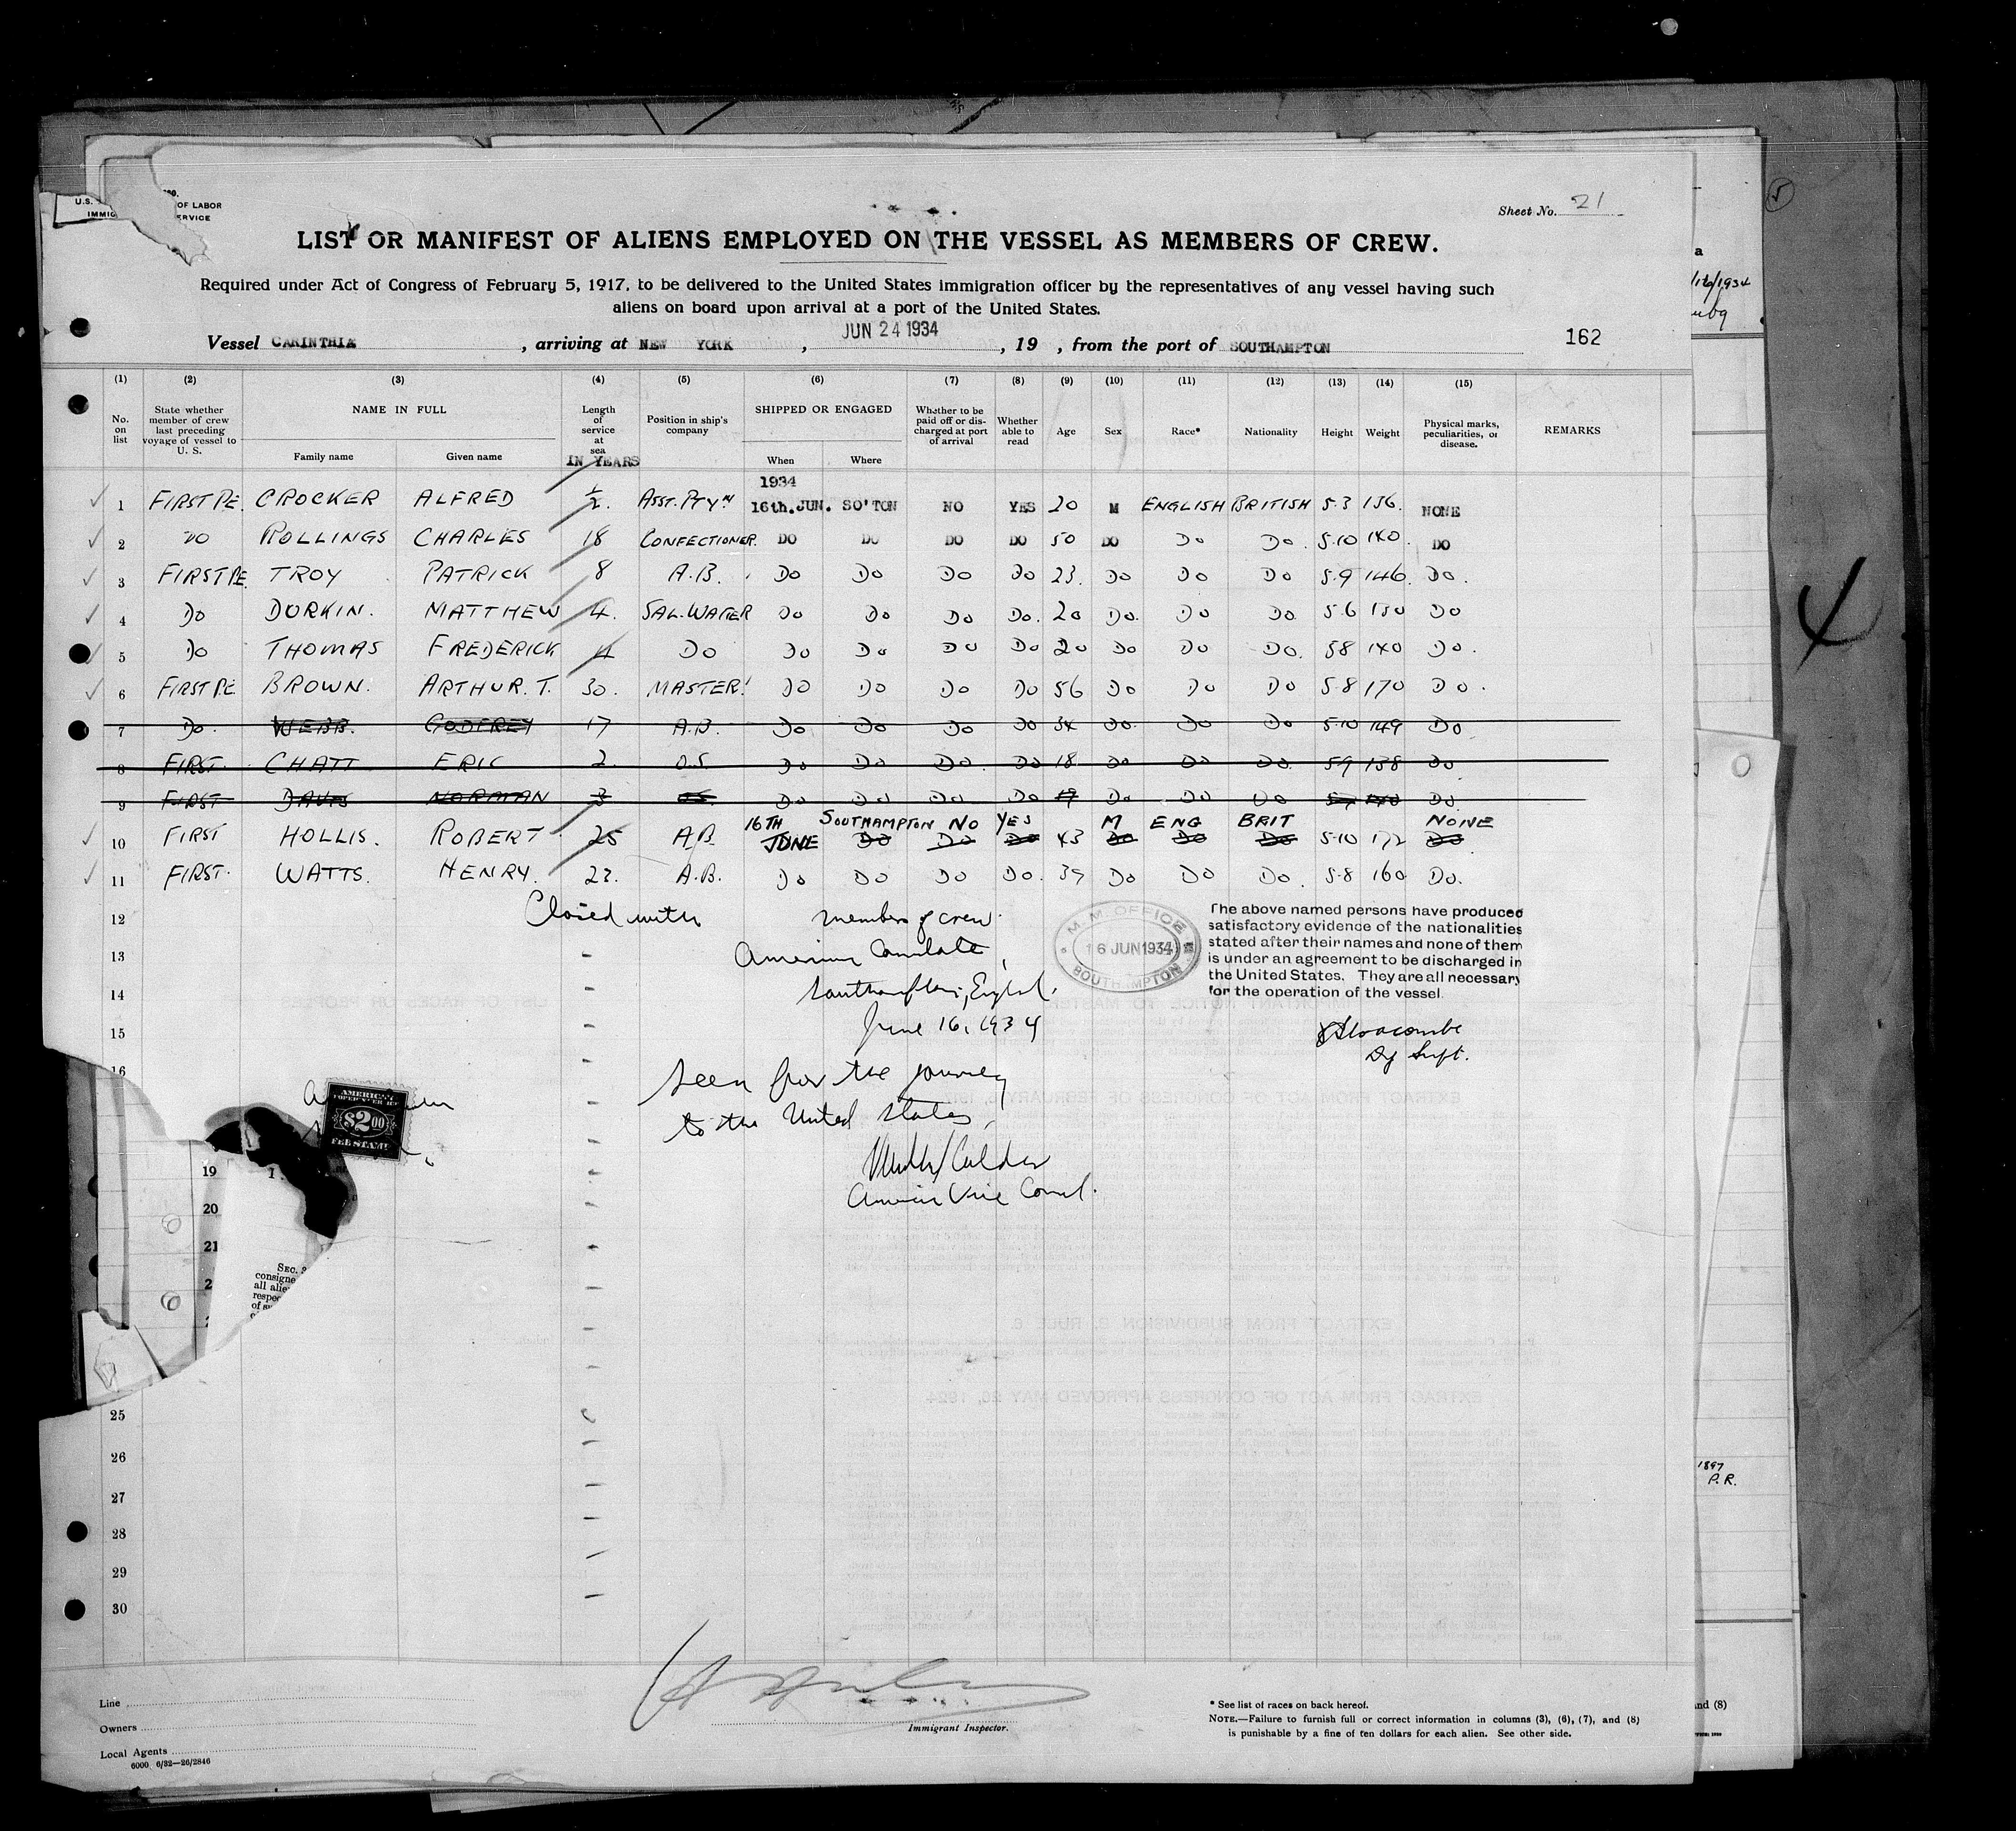 U.S. OF LABOR
IMMIG ERVICE
Sheet No. 21
LIST OR MANIFEST OF ALIENS EMPLOYED ON THE VESSEL AS MEMBERS OF CREW.
Required under Act of Congress of February 5, 1917, to be delivered to the United States immigration officer by the representatives of any vessel having such
aliens on board upon arrival at a port of the United States.
Vessel CARINTHIA, arriving at NEW YORK, JUN 24 1934, 19 , from the port of SOUTHAMPTON 162
(1) (2) (3) (4) (5) (6) (7) (8) (9) (10) (11) (12) (13) (14) (15)
No. on list State whether member of crew last preceding voyage of vessel to U. S. NAME IN FULL Family name Given name Length of service at sea IN YEARS Position in ship's company SHIPPED OR ENGAGED When Where Whether to be paid off or discharged at port of arrival Whether able to read Age Sex Race* Nationality Height Weight Physical marks, peculiarities, or disease. REMARKS
1934
1 FIRST P.E. CROCKER ALFRED ½ ASST. PTYN 16th.JUN. SO'TON NO YES 20 M ENGLISH BRITISH 5.3 136 NONE
2 DO ROLLINGS CHARLES 18 CONFECTIONER DO DO DO DO 50 DO DO DO 5.10 140 DO
3 FIRST P.E. TROY PATRICK 8 A.B. DO DO DO DO 23. DO DO DO 5.9 146. DO.
4 DO DURKIN. MATTHEW 4. SAL. WAITER DO DO DO DO. 20 DO. DO DO 5.6 150 DO
5 DO THOMAS FREDERICK 4 DO DO DO DO DO 20 DO DO DO. 5 8 140 DO.
6 FIRST P.E. BROWN. ARTHUR. T. 30. MASTER. DO DO DO DO 56 DO DO DO 5.8 170 DO.
7 DO. WEBB. GODFREY 17 A.B. DO DO DO DO 34 DO DO DO 5.10 149 DO
8 FIRST. CHATT ERIC 2. O.S. DO DO DO. DO 18 DO DO DO. 5 9 138 DO
9 FIRST DAVIS NORMAN 3 OS. DO DO DO DO 19 DO DO DO DO.
16TH SOUTHAMPTON NO YES M ENG BRIT NONE
10 FIRST HOLLIS. ROBERT 25 A.B. JUNE DO DO DO 43 DO DO DO 5.10 172 DO
11 FIRST. WATTS. HENRY. 23. A.B. DO DO DO DO. 39 DO DO DO. 5.8 160 DO.
12 Closed with members of crew.
13 American Consulate,
14 Southampton, England.
15 June 16, 1934
M.M. OFFICE
16 JUN 1934
SOUTHAMPTON
The above named persons have produced
satisfactory evidence of the nationalities
stated after their names and none of them
is under an agreement to be discharged in
the United States. They are all necessary
for the operation of the vessel.
Dy Supt.
16
Seen for the journey
to the United States,
American Vice Consul.
AMERICAN
$2.00
FEE STAMP
19
20
21
SEC.
consigne
all alie
respec
25
26
27
28
29
30
1897
P.R.
Line
Owners
Local Agents
6000 6/32—26/2846
Immigrant Inspector.
* See list of races on back hereof.
NOTE.—Failure to furnish full or correct information in columns (3), (6), (7), and (8)
is punishable by a fine of ten dollars for each alien. See other side.
nd (8)